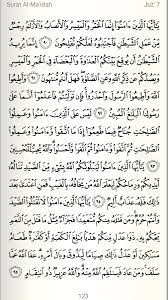 Surat Al-Ma'idah Juz' 7
يَٰٓأَيُّهَا ٱلَّذِينَ ءَامَنُوٓا۟ إِنَّمَا ٱلْخَمْرُ وَٱلْمَيْسِرُ وَٱلْأَنصَابُ وَٱلْأَزْلَٰمُ رِجْسٌ
مِّنْ عَمَلِ ٱلشَّيْطَٰنِ فَٱجْتَنِبُوهُ لَعَلَّكُمْ تُفْلِحُونَ ٩٠ إِنَّمَا يُرِيدُ
ٱلشَّيْطَٰنُ أَن يُوقِعَ بَيْنَكُمُ ٱلْعَدَٰوَةَ وَٱلْبَغْضَآءَ فِى ٱلْخَمْرِ وَٱلْمَيْسِرِ
وَيَصُدَّكُمْ عَن ذِكْرِ ٱللَّهِ وَعَنِ ٱلصَّلَوٰةِ ۖ فَهَلْ أَنتُم مُّنتَهُونَ ٩١
وَأَطِيعُوا۟ ٱللَّهَ وَأَطِيعُوا۟ ٱلرَّسُولَ وَٱحْذَرُوا۟ ۚ فَإِن تَوَلَّيْتُمْ فَٱعْلَمُوٓا۟ أَنَّمَا
عَلَىٰ رَسُولِنَا ٱلْبَلَٰغُ ٱلْمُبِينُ ٩٢ لَيْسَ عَلَى ٱلَّذِينَ ءَامَنُوا۟ وَعَمِلُوا۟
ٱلصَّٰلِحَٰتِ جُنَاحٌ فِيمَا طَعِمُوٓا۟ إِذَا مَا ٱتَّقَوا۟ وَّءَامَنُوا۟ وَعَمِلُوا۟
ٱلصَّٰلِحَٰتِ ثُمَّ ٱتَّقَوا۟ وَّءَامَنُوا۟ ثُمَّ ٱتَّقَوا۟ وَّأَحْسَنُوا۟ ۗ وَٱللَّهُ يُحِبُّ ٱلْمُحْسِنِينَ ٩٣
يَٰٓأَيُّهَا ٱلَّذِينَ ءَامَنُوا۟ لَيَبْلُوَنَّكُمُ ٱللَّهُ بِشَىْءٍ مِّنَ ٱلصَّيْدِ تَنَالُهُۥٓ
أَيْدِيكُمْ وَرِمَاحُكُمْ لِيَعْلَمَ ٱللَّهُ مَن يَخَافُهُۥ بِٱلْغَيْبِ ۚ فَمَنِ ٱعْتَدَىٰ بَعْدَ
ذَٰلِكَ فَلَهُۥ عَذَابٌ أَلِيمٌ ٩٤ يَٰٓأَيُّهَا ٱلَّذِينَ ءَامَنُوا۟ لَا تَقْتُلُوا۟ ٱلصَّيْدَ
وَأَنتُمْ حُرُمٌ ۚ وَمَن قَتَلَهُۥ مِنكُم مُّتَعَمِّدًا فَجَزَآءٌ مِّثْلُ مَا قَتَلَ مِنَ ٱلنَّعَمِ
يَحْكُمُ بِهِۦ ذَوَا عَدْلٍ مِّنكُمْ هَدْيًۢا بَٰلِغَ ٱلْكَعْبَةِ أَوْ كَفَّٰرَةٌ طَعَامُ
مَسَٰكِينَ أَوْ عَدْلُ ذَٰلِكَ صِيَامًا لِّيَذُوقَ وَبَالَ أَمْرِهِۦ ۗ عَفَا ٱللَّهُ عَمَّا
سَلَفَ ۚ وَمَنْ عَادَ فَيَنتَقِمُ ٱللَّهُ مِنْهُ ۗ وَٱللَّهُ عَزِيزٌ ذُو ٱنتِقَامٍ ٩٥
123